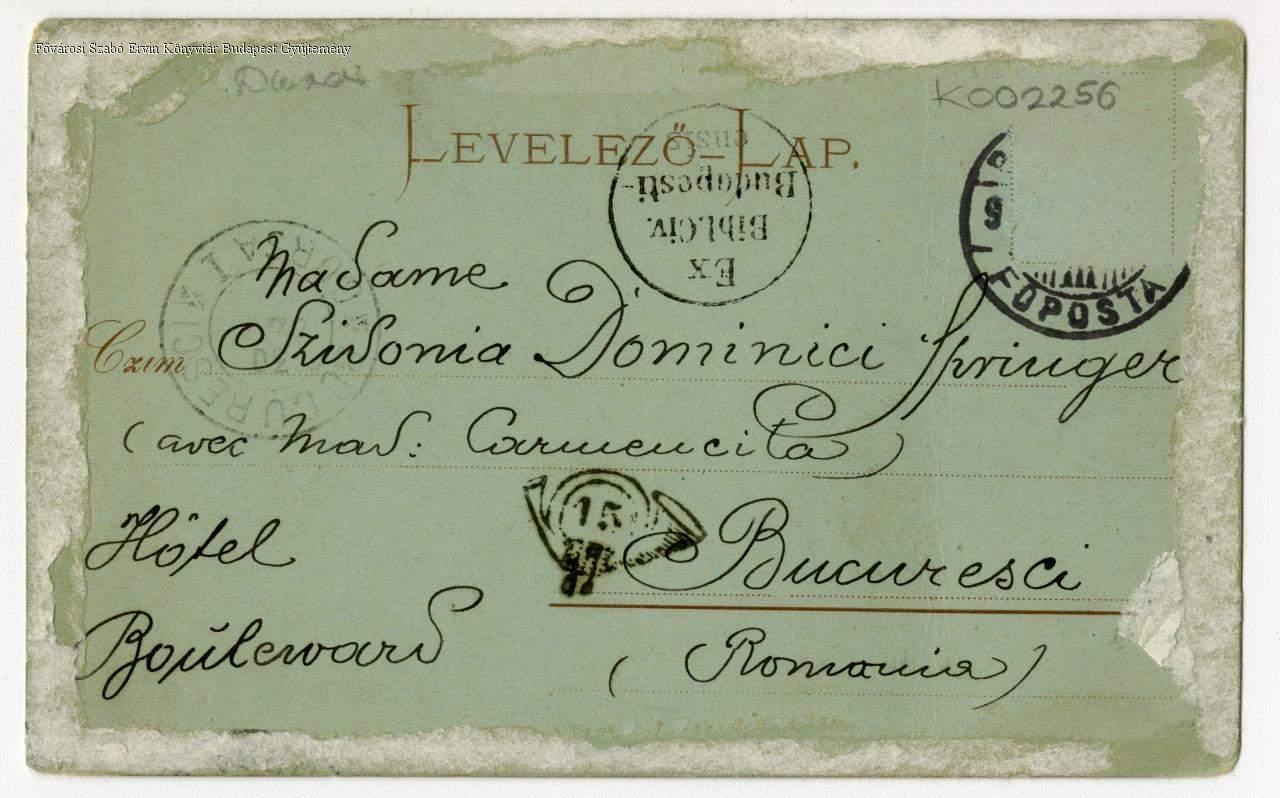 Fővárosi Szabó Ervin Könyvtár Budapest Gyűjtemény
K002256
LEVELEZŐ-LAP.
Ex
Bibl.Civ.
Budapesti-
ensis
FŐPOSTA
BUCURESCI
Madame
Czim Szidonia Dominici Springer
(avec Mad: Carmencita)
15
Hôtel
Bucuresci
Boulevard
(Romania)